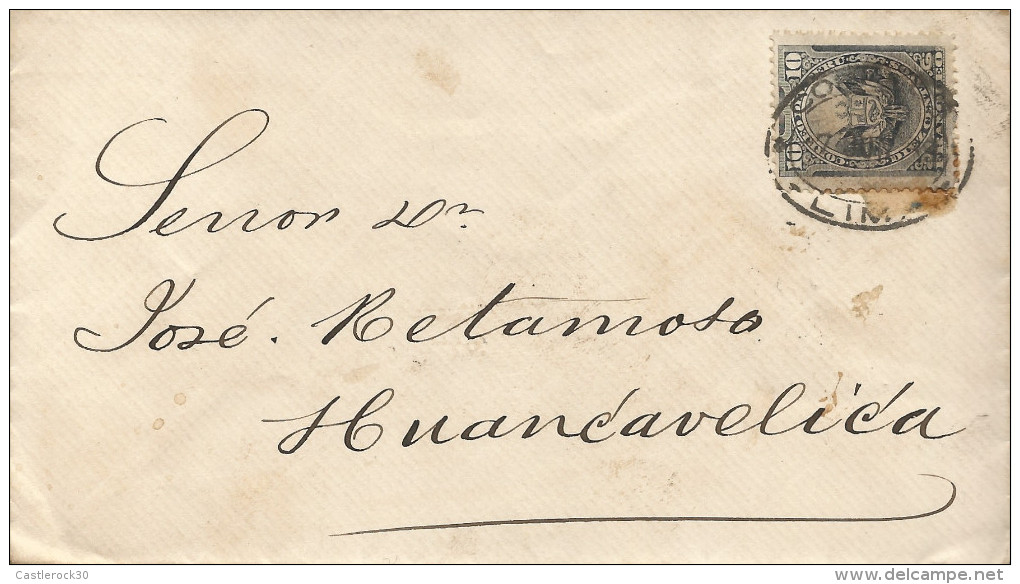 Senor Dr
José. Retamoso
Huancavelica
10
10
PERU
LIMA
Castlerock30
delcampe.net